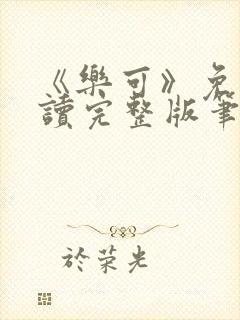 《樂可》免
讀完整版筆
於荣光